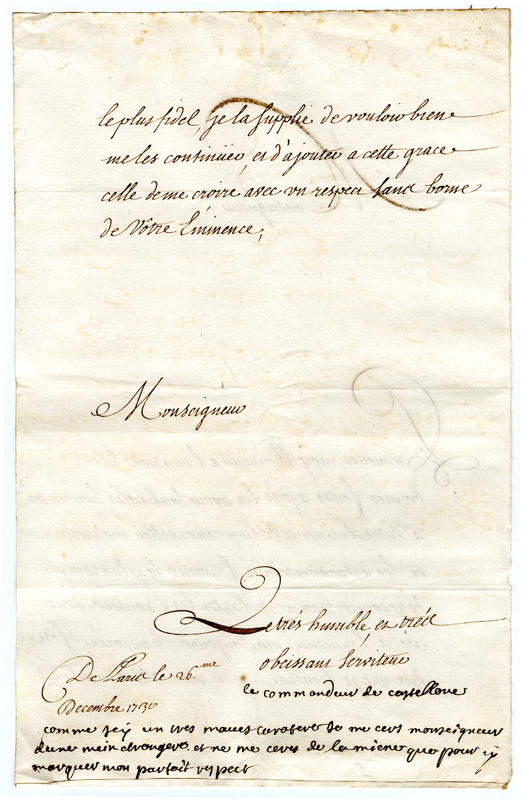 le plus fidel, je la supplie de vouloir bien
me les continüer, et d'ajouter a cette grace
celle de me croire avec un respect sans borne
de Vôtre Eminence,
Monseigneur
Le trés humble, et trés
obeissant Serviteur
De Paris le 26.me
le commandeur de castellane
Decembre 1730
comme jey un tres maues caratere je me cers monseigneur
dune mein etrangere et ne me ceres de la miene que pour i
marquer mon parfait respect